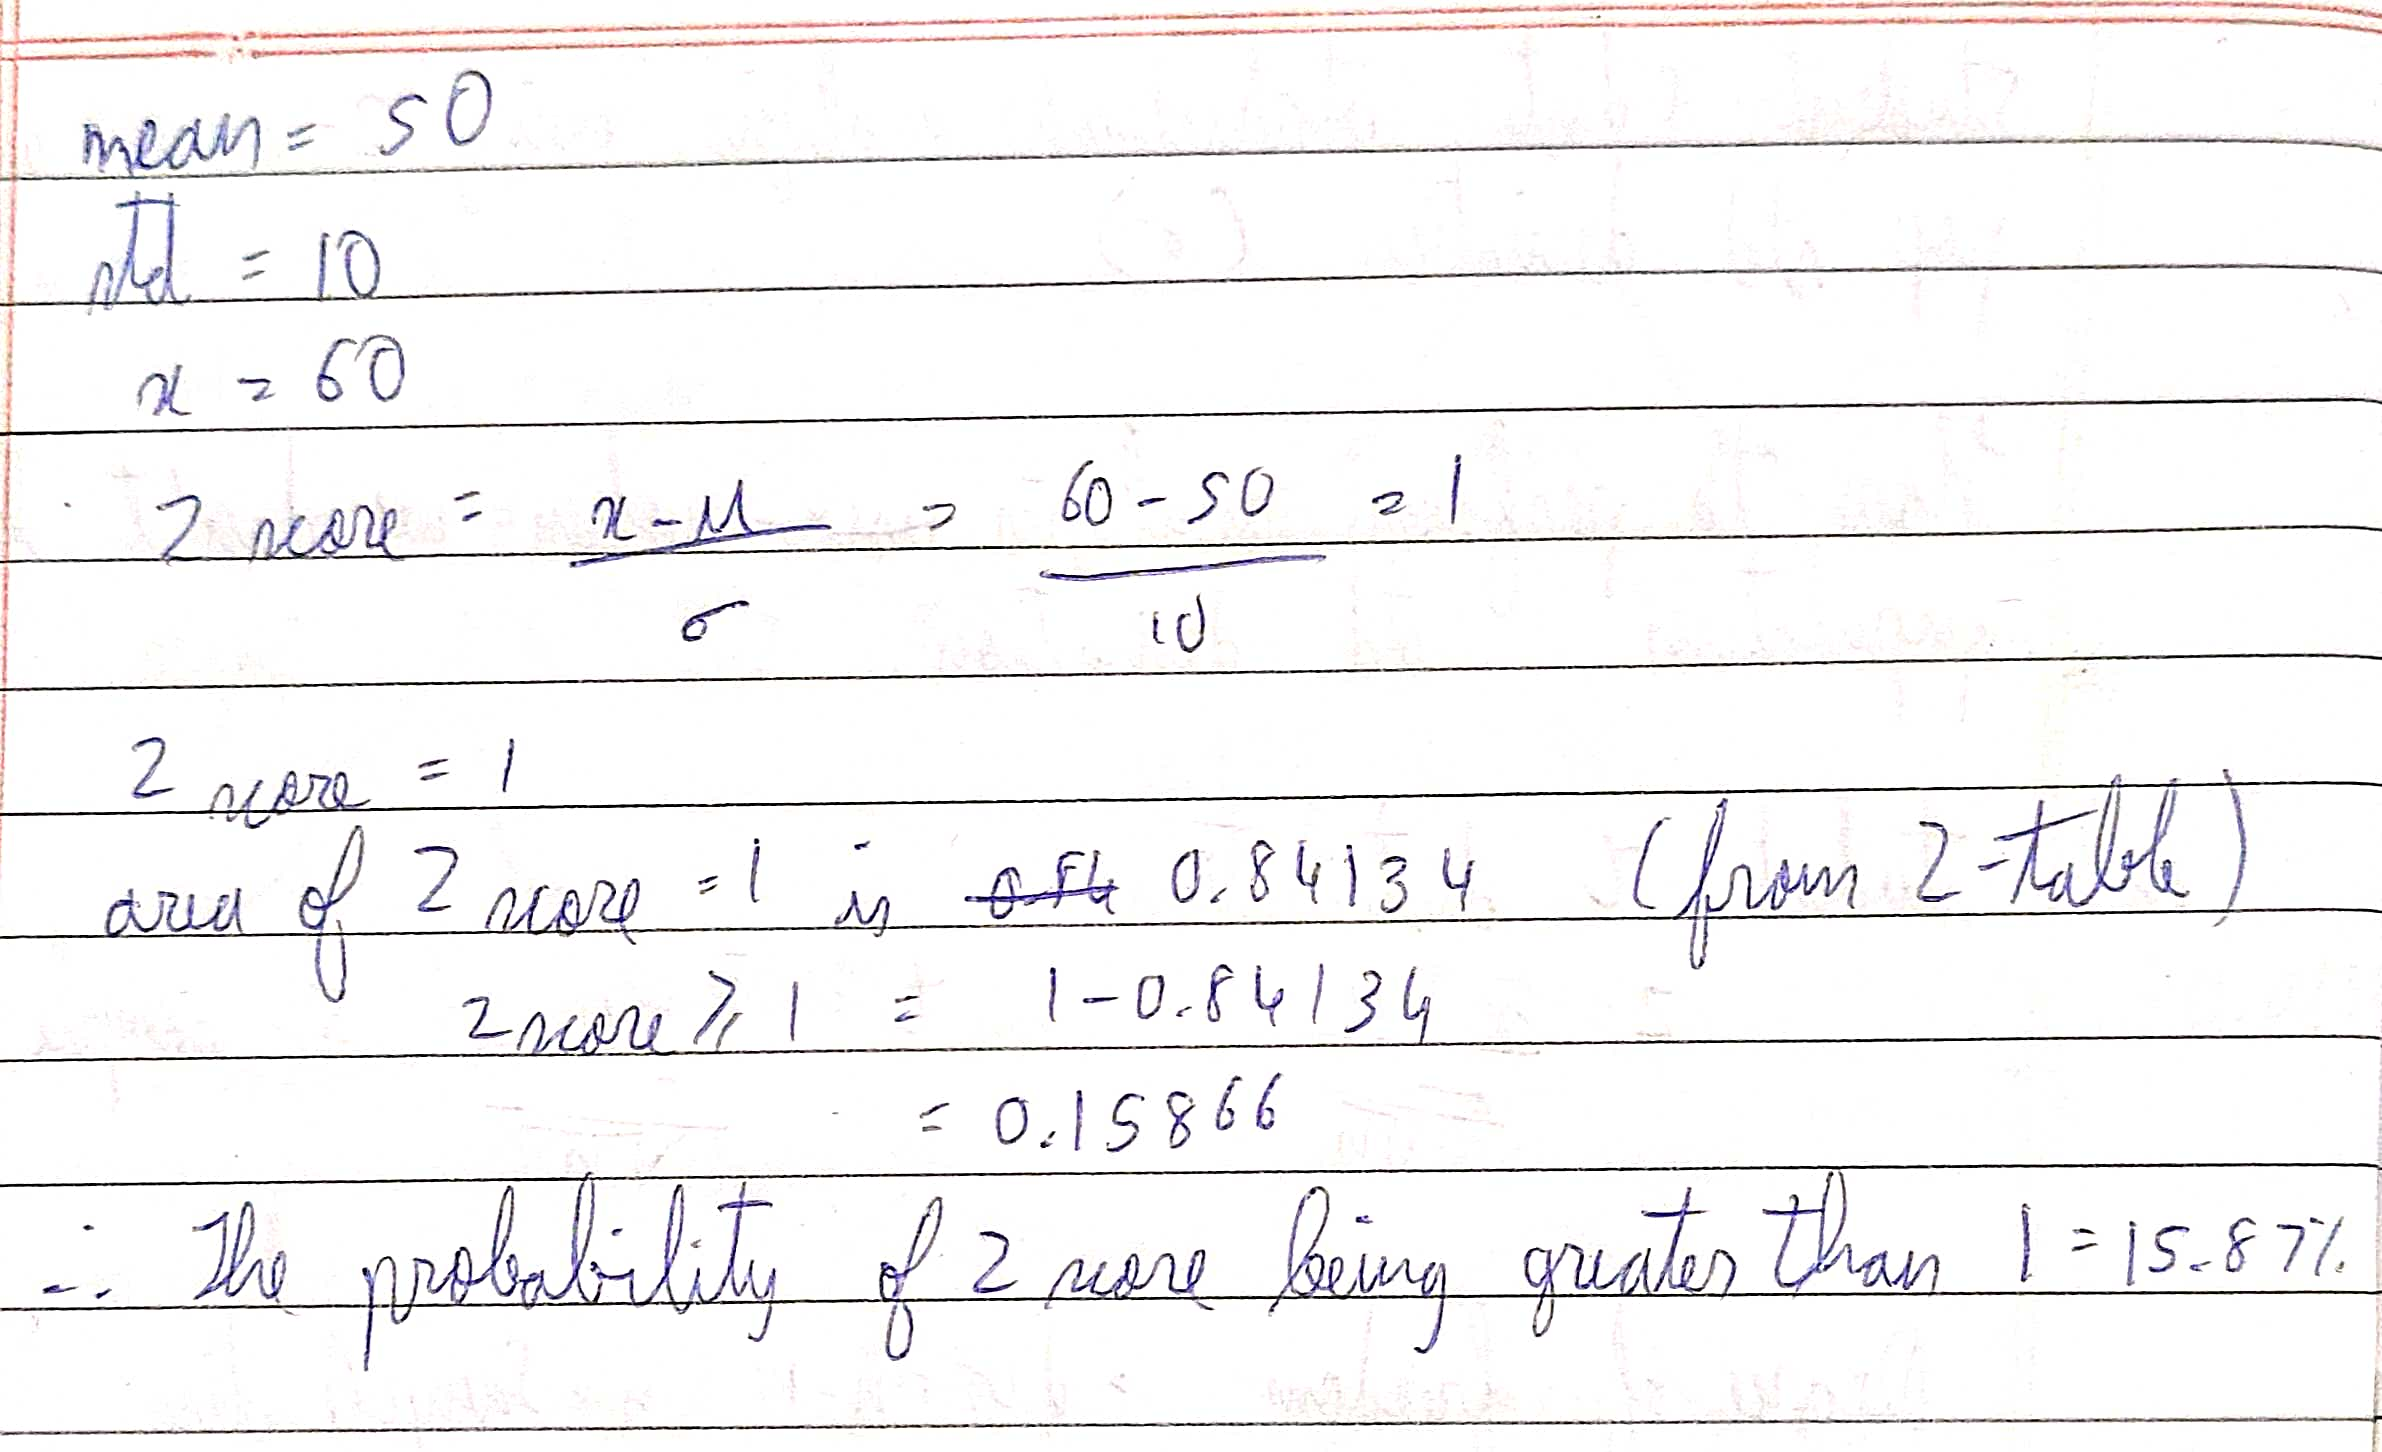 mean = 50
std = 10
x = 60
Z score = x - μ / σ = 60 - 50 / 10 = 1
Z score = 1
area of Z score = 1 is 0.84134 (from Z-table)
Z score ≥ 1 = 1 - 0.84134
= 0.15866
∴ The probability of Z score being greater than 1 = 15.87%